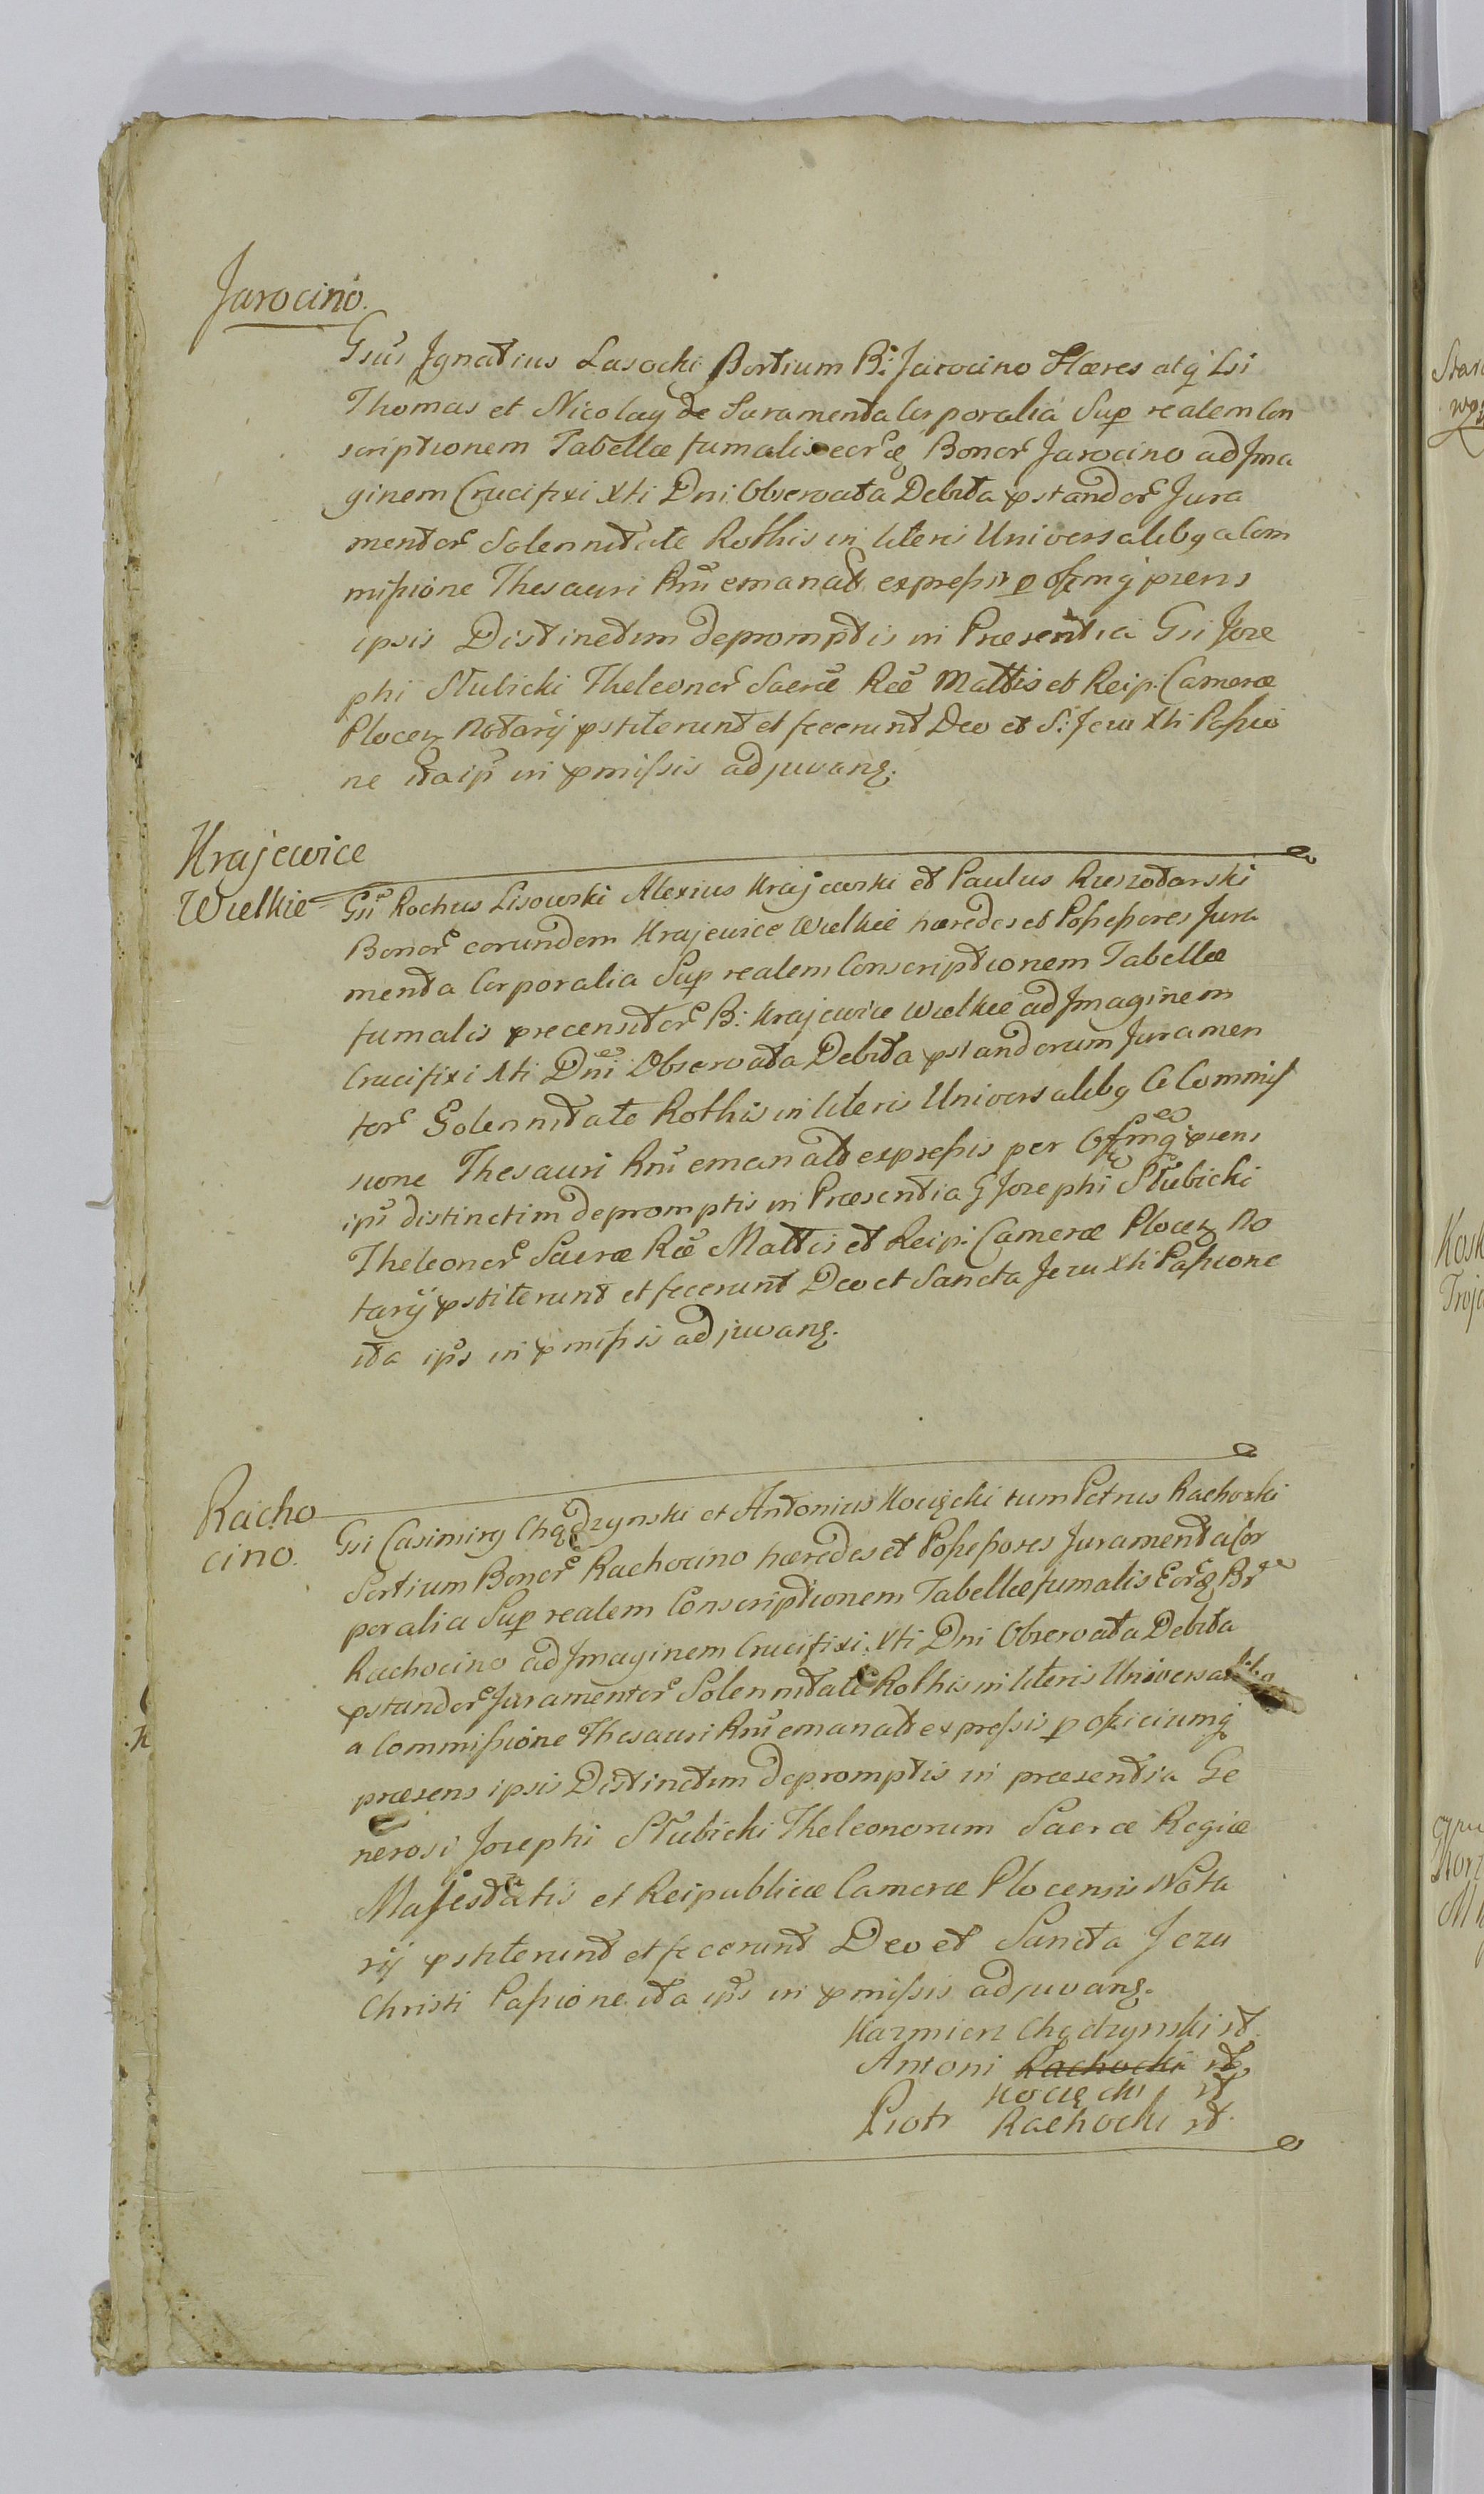 Jarocino.
Gsus Ignatius Lasocki Sortium B: Jarocino Hæres atq Lsi
Thomas et Nicolaq de Juramenta Corporalia Sup realem Con
scriptionem Tabellæ fumalis eorūq Bonor Jarocino ad Ima
ginem Crucifixi Xti Dni Observata Debita pstandor Jura
mentor Solennitate Rothis in literis Universalibq a Com
mißione Thesauri Rni emanat expreßis p Ofcmq præns
ipsis Distinctim depromptis in Præsentia Gsi Joze
phi Słubicki Theleonor Sacræ Ræ Mattis et Reip: Cameræ
Plocen Notarij pstiterunt et fecerunt Deo et S: Jezu Xti Paßio
ne ita ips in pmißis adjuvanq.
Krajewice
Wielkie
Gsi Rochus Lisowski Alexius Krajewski et Paulus Rzeszotarski
Bonor eorundem Krajewice Wielkie hæredes et Poßeßores Jura
menta Corporalia Sup realem Conscriptionem Tabellæ
fumalis precensitor B: Krajewice Wielkie ad Imaginem
Crucifixi Xti Dni Observata Debita pstandorum Juramen
tor Solennitate Rothis in literis Universalibq a Commiß
sione Thesauri Rni emanat expreßis per Offmq præns
ips distinctim depromptis in Præsentia G Jozephi Słubicki
Theleonor Sacræ Ræ Mattis et Reip: Cameræ Plocen No
tarij pstiterunt et fecerunt Deo et Sancta Jezu Xti Paßione
ita ips in pmißis adjuvanq.
Racho
cino.
Gsi Casimirq Chądzynski et Antonius Kocięcki tum Petrus Rachocki
Sortium Bonor Rachocino hæredes et Poßeßores Juramenta Cor
poralia Sup realem Conscriptionem Tabellæ fumalis Eorūq Br
Rachocino ad Imaginem Crucifixi Xti Dni Observata Debita
pstandor Juramentor Solennitate Rothis in literis Universalibq
a Commißione Thesauri Rni emanat expreßis p officiumq
præsens ipsis Distinctim depromptis in præsentia Ge
nerosi Jozephi Słubicki Theleonorum Sacræ Regiæ
Majestatis et Reipublicæ Cameræ Plocensis Nota
rij pstiterunt et fecerunt Deo et Sancta Jezu
Christi Paßione ita ips in pmißis adjuvanq.
Kazmierz Chądzynski
Antoni Rachocki
Kocięcki
Piotr Rachocki